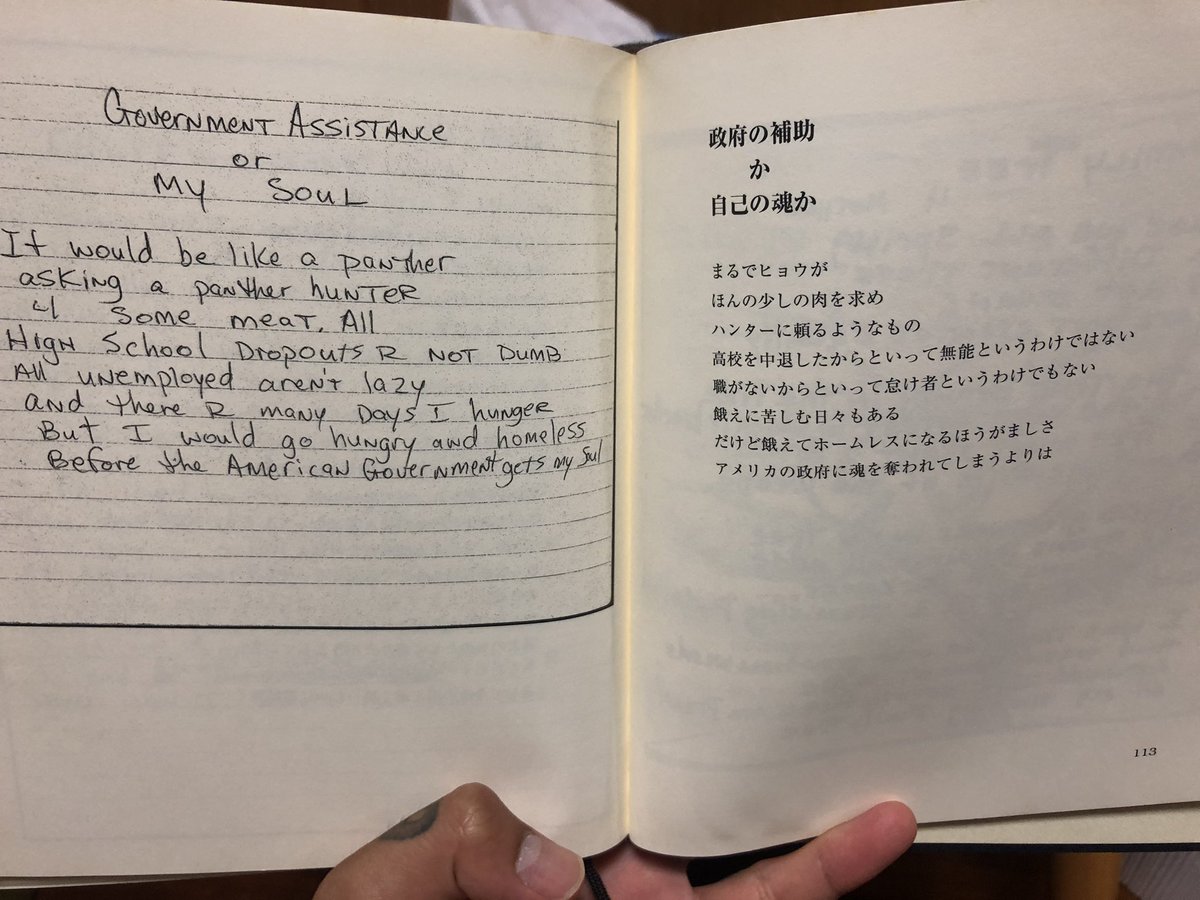 Government Assistance
or
My Soul
It would be like a panther
asking a panther hunter
4 some meat. All
High School Dropouts R NOT DUMB
All unemployed aren't lazy
and there R many Days I hunger
But I would go hungry and homeless
Before the American Government gets my soul
政府の補助
か
自己の魂か
まるでヒョウが
ほんの少しの肉を求め
ハンターに頼るようなもの
高校を中退したからといって無能というわけではない
職がないからといって怠け者というわけでもない
餓えに苦しむ日々もある
だけど餓えてホームレスになるほうがましさ
アメリカの政府に魂を奪われてしまうよりは
113